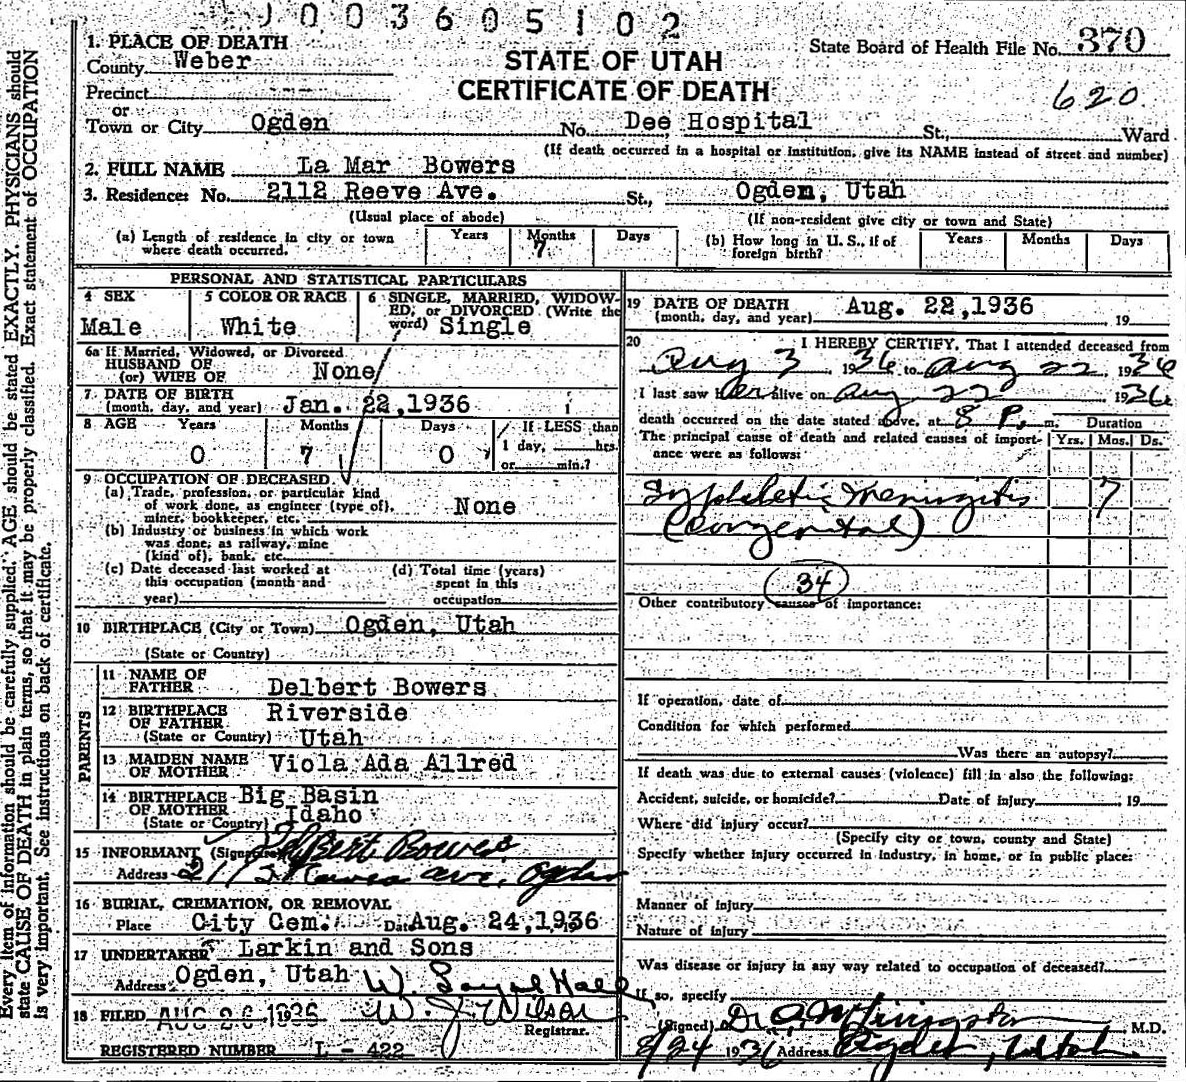 J003605102
State Board of Health File No. 370
1. PLACE OF DEATH
County Weber
STATE OF UTAH
CERTIFICATE OF DEATH
620
Precinct
or
Town or City Ogden No. Dee Hospital St., Ward
(If death occurred in a hospital or institution, give its NAME instead of street and number)
2. FULL NAME La Mar Bowers
3. Residence: No. 2112 Reeve Ave. St., Ogden, Utah
(Usual place of abode) (If non-resident give city or town and State)
(a) Length of residence in city or town where death occurred. Years Months 7 Days
(b) How long in U. S., if of foreign birth? Years Months Days
PERSONAL AND STATISTICAL PARTICULARS
4 SEX Male
5 COLOR OR RACE White
6 SINGLE, MARRIED, WIDOWED, or DIVORCED (Write the word) Single
6a If Married, Widowed, or Divorced
HUSBAND OF
(or) WIFE OF None
7 DATE OF BIRTH
(month, day, and year) Jan. 22,1936
8 AGE Years Months Days If LESS than
1 day, hrs.
or min.?
0 7 0
9 OCCUPATION OF DECEASED.
(a) Trade, profession, or particular kind
of work done, as engineer (type of),
miner, bookkeeper, etc. None
(b) Industry or business in which work
was done, as railway, mine
(kind of), bank, etc.
(c) Date deceased last worked at
this occupation (month and
year)
(d) Total time (years)
spent in this
occupation
10 BIRTHPLACE (City or Town) Ogden, Utah
(State or Country)
PARENTS
11 NAME OF
FATHER Delbert Bowers
12 BIRTHPLACE
OF FATHER Riverside
(State or Country) Utah
13 MAIDEN NAME
OF MOTHER Viola Ada Allred
14 BIRTHPLACE Big Basin
OF MOTHER
(State or Country) Idaho
15 INFORMANT (Signature) Delbert Bowers
Address Ave, Ogden
16 BURIAL, CREMATION, OR REMOVAL
Place City Cem. Date Aug. 24,1936
17 UNDERTAKER Larkin and Sons
Address Ogden, Utah
18 FILED AUG 26 1936 W. J. Wilson
Registrar.
REGISTERED NUMBER L - 422
19 DATE OF DEATH
(month, day, and year) Aug. 22,1936 , 19
20 I HEREBY CERTIFY, That I attended deceased from
Aug 3, 1936 to Aug 22, 1936
I last saw alive on Aug 22 1936
death occurred on the date stated above, at 8 P. m. Duration
The principal cause of death and related causes of importance were as follows: Yrs. Mos. Ds.
Syphiletic Meningitis 7
(Congenital)
34
Other contributory causes of importance:
If operation, date of
Condition for which performed
Was there an autopsy?
If death was due to external causes (violence) fill in also the following:
Accident, suicide, or homicide? Date of injury , 19
Where did injury occur?
(Specify city or town, county and State)
Specify whether injury occurred in industry, in home, or in public place:
Manner of injury
Nature of injury
Was disease or injury in any way related to occupation of deceased?
If so, specify
(Signed) Dr. Livingston M.D.
8/24 1936 Address Ogden, Utah
Every item of information should be carefully supplied. AGE should be stated EXACTLY. PHYSICIANS should
state CAUSE OF DEATH in plain terms, so that it may be properly classified. Exact statement of OCCUPATION
is very important. See instructions on back of certificate.